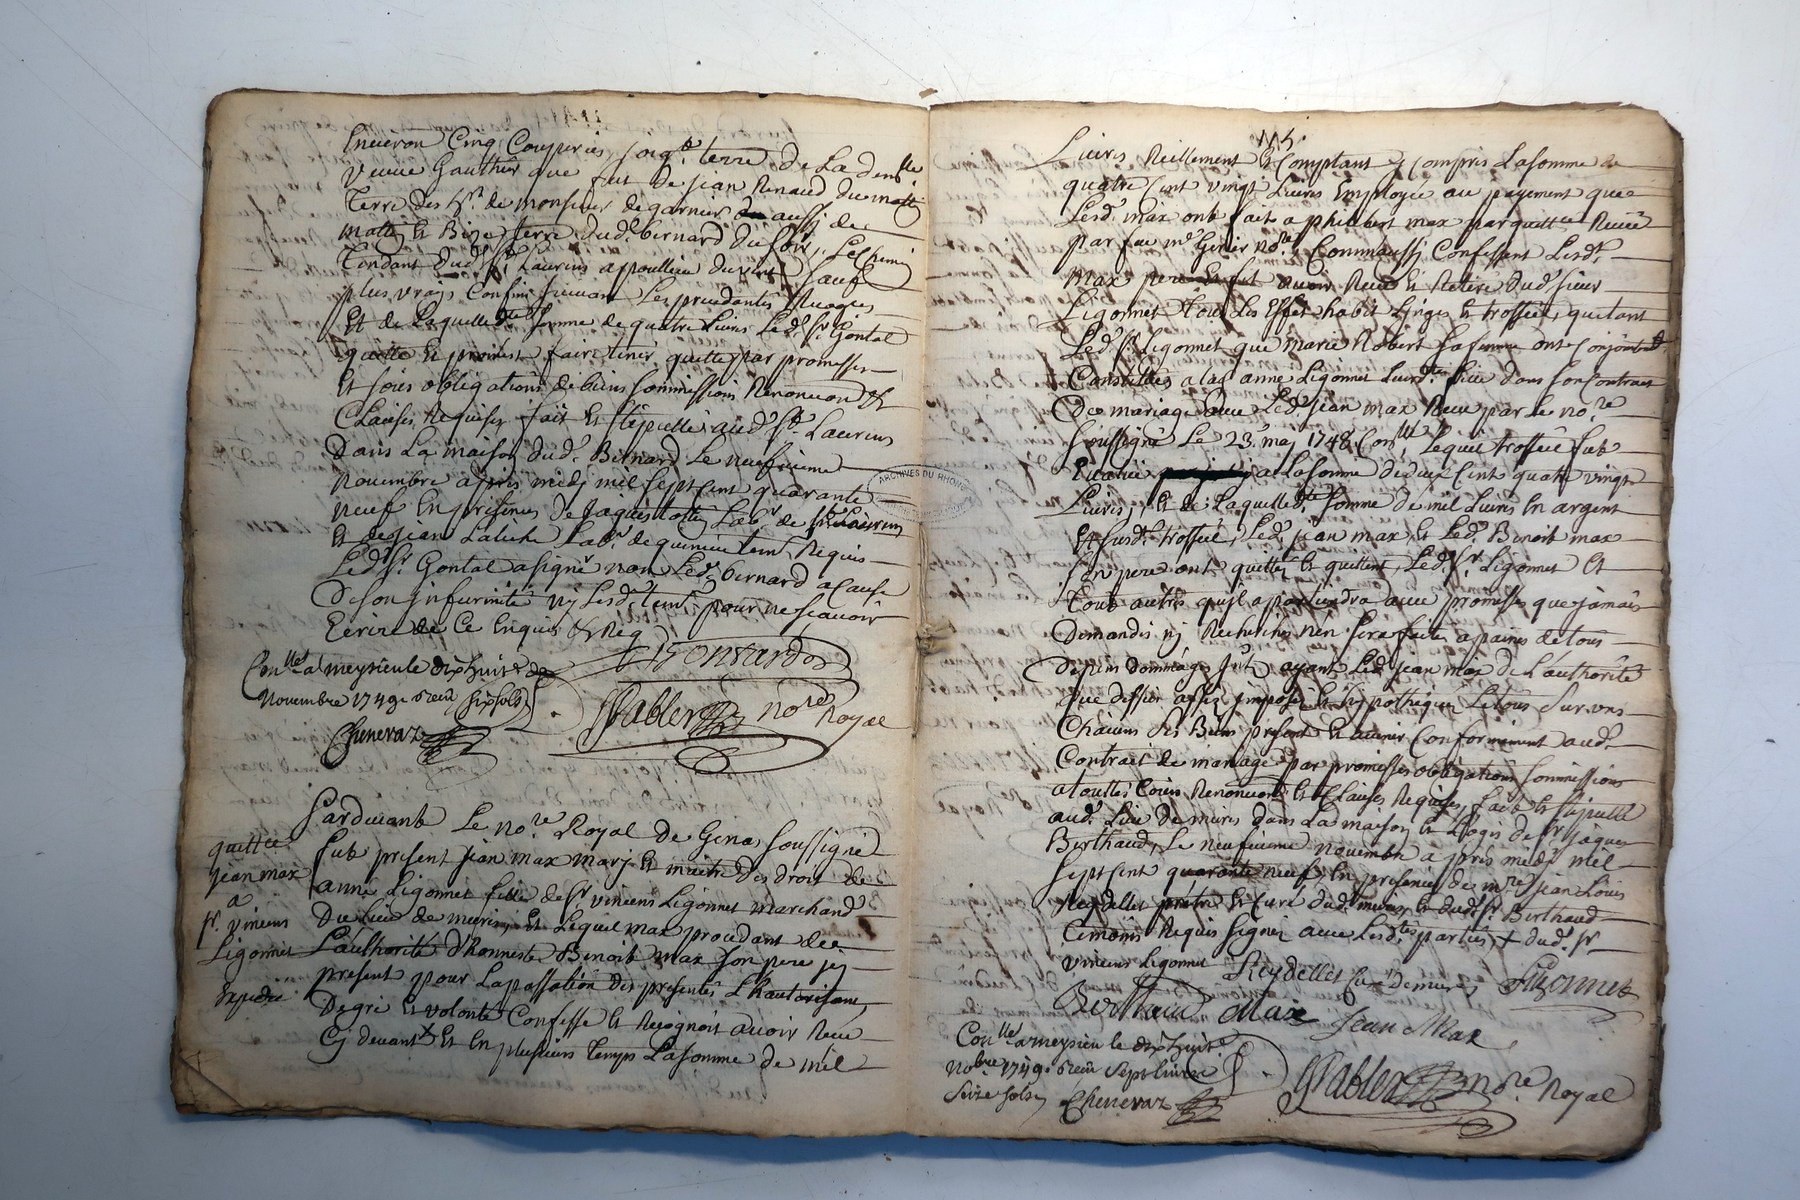 Environ Cinq Couperies joigt terre De La demlle
veuve Gauthier que fut De jean Renaud du matin
Terre des Srs de monsieur de garnier aussi de
matin Et Bize terre dudt bernard du soir, Le Chemin
Tendant dudt St Laurens a poullieu du vent Sauf
plus vrays Confins suivant Les precedantes
Et de Laquelledte somme de quatre Livres Ledt Sr Gontal
quitte Et promest faire tenir quitte par promesses
Et soies obligations de biens sommissions Renonciaons &
Clauses Requises fait Et stipullé aud St Laurens
Dans La maison dudt Bernard Le neufvieme
Novembre apres midy mil sept cent quarante
neuf En presence De Jaques Labr de St Laurens
Et de jean Labr de quemieu temt Requis
Ledt Sr Gontal a signé non Ledt bernard a Cause
De son jnfirmité ny Lesdts temt pour ne scavoir
Ecrire de Ce Enquis & Req
Conllé a meyzieu le dix huit de
Novembre 1749 Receu six sols
Chenevaz
Pablen nore Royal
Pardevant Le nore Royal De Genas soussigné
quittce
fut present jean max mary Et maitre des droit de
jean max
anne Ligonnet fille de Sr vincens Ligonnet marchand
a
Sr vincens
Du Lieu de meuris, Et Lequel max procedant de
Ligonnet
L'authorité D'honneste Benoit max son pere jcy
present pour La passation des presentes L'hautorisant,
Expedié
De gré Et volonté Confesse Et Recognoit avoir Receu
Cy devant Et En plusieurs temps La somme de mil
115
Livres Réellement Et Comptant y Compris La somme de
quatre Cent vingt Livres Employée au payement que
Lesdt max ont fait a philibert max par quittce Receue
par feu me Genier nore, Comm'aussi Confessent Lesdt
max pere Et fils avoir Receu Et Retiré dudt sieur
Ligonnet tous Les Effets habits Linges Et trossel, quitant
Ledt Sr Ligonnet que marie Robert sa femme ont Conjointemt
Constitués a lad anne Ligonnet Leurdte fille dans son Contract
De mariage avec Ledt jean max Receu par Le nore
soussigné Le 23 may 1748 Conllé, Lequel trossel fut
Evalué a La somme de deux Cent quatre vingt
Livres, Et de Laquelledte somme de mil Livres En argent
Et susdt trossel, Ledt jean max, Et Ledt Benoit max
son pere ont quitté Et quittent, Ledt Sr Ligonnet Et
Tous autres qu'jl apartiendra avec promesses que jamais
Demandes ny Recherches n'en sera faite a paines de tous
Depens dommages jntts ayant Ledt jean max de L'authorité
que dessus assez jmposé Et hypothequé Letout sur uns
Chacuns ses Biens present Et avenir Conformement audt
Contrait de mariage par promesses obligations sommissions
a touttes Cours Renonciaons Et Clauses Requises, fait Et stipullé
audt Lieu De meuris dans La maison Et Logis de Sr Jaques
Berthaud, Le neufvieme novembre apres medy mil
sept Cent quarante neuf, En presence de mre jean Louis
Reydellet pretre Et Curé dudt meuris Et dudt Sr Berthaud
Temoins Requis signez avec Lesdtes parties, + dudt Sr
vincens Ligonnet
Reydellet Curé de meuris Ligonnet
Berthaud Max Jean Max
Conllé a meyzieu le dix huit
Nobre 1749 Receu sept Livres
Seize sols Chenevaz
Pablen nore Royal
ARCHIVES DU RHÔNE